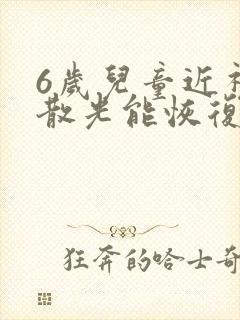 6歲兒童近視
散光能恢復
狂奔的哈士奇